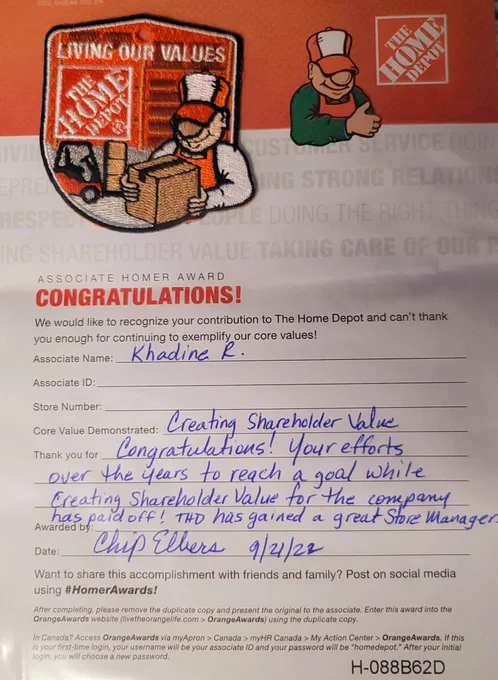 LIVING OUR VALUES
THE HOME DEPOT
THE HOME DEPOT
CUSTOMER SERVICE DOIN
ING STRONG RELATION
RESPEC PEOPLE DOING THE RIGHT THING
ING SHAREHOLDER VALUE TAKING CARE OF OUR
ASSOCIATE HOMER AWARD
CONGRATULATIONS!
We would like to recognize your contribution to The Home Depot and can't thank
you enough for continuing to exemplify our core values!
Associate Name: Khadine R.
Associate ID:
Store Number:
Core Value Demonstrated: Creating Shareholder Value
Thank you for Congratulations! Your efforts
over the years to reach a goal while
Creating Shareholder Value for the company
has paid off! THD has gained a great Store Manager
Awarded by:
Date: Chip Elbers 9/21/22
Want to share this accomplishment with friends and family? Post on social media
using #HomerAwards!
After completing, please remove the duplicate copy and present the original to the associate. Enter this award into the
OrangeAwards website (livetheorangelife.com > OrangeAwards) using the duplicate copy.
In Canada? Access OrangeAwards via myApron > Canada > myHR Canada > My Action Center > OrangeAwards. If this
is your first-time login, your username will be your associate ID and your password will be "homedepot." After your initial
login, you will choose a new password.
H-088B62D